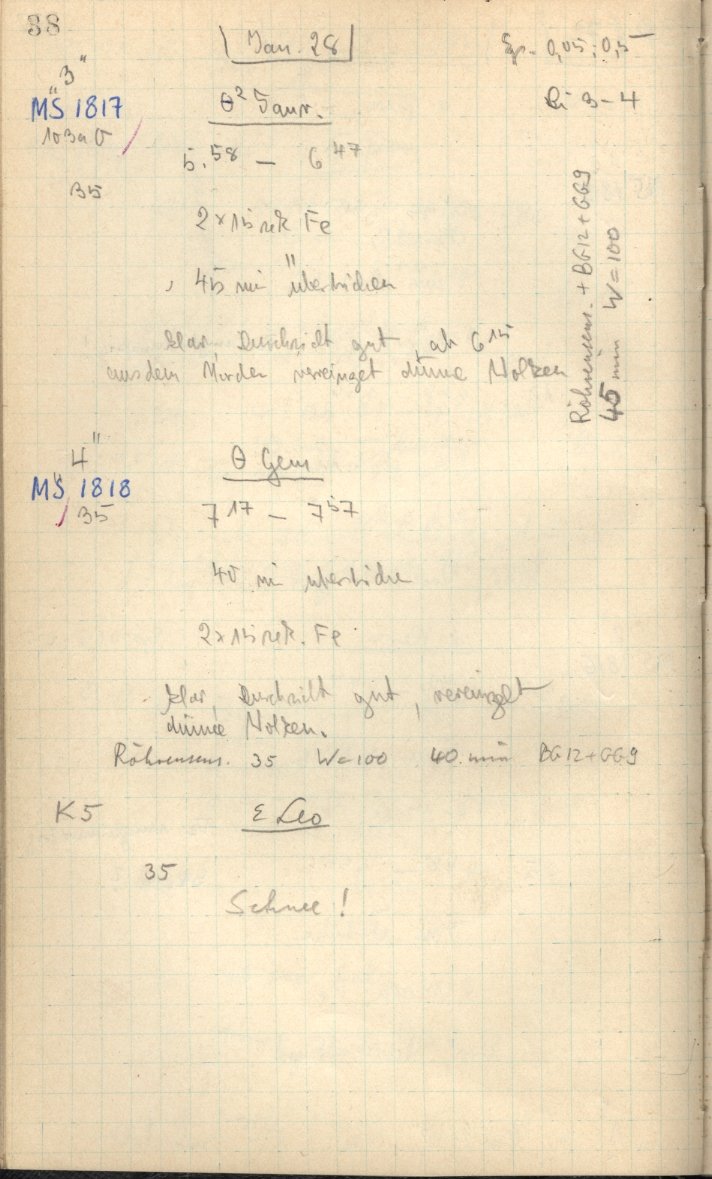 38
Jan. 28
Sp. 0,05; 0,5
"3"
MS 1817
θ² Taur.
Li 3-4
103a O
5.58 — 6 47
35
2 x 15 sek Fe
45 min überstrichen
klar, Durchsicht gut, ab 6 15
aus dem Norden vereinzelt dünne Wolken
Röhrensens. + BG12 + GG9
45 min W=100
"4"
MS 1818
θ Gem
35
7 17 — 7 57
40 min überstrichen
2 x 15 sek. Fe
klar, Durchsicht gut, vereinzelt
dünne Wolken.
Röhrensens. 35 W=100 40 min BG12+GG9
K5
ε Leo
35
Schnee!